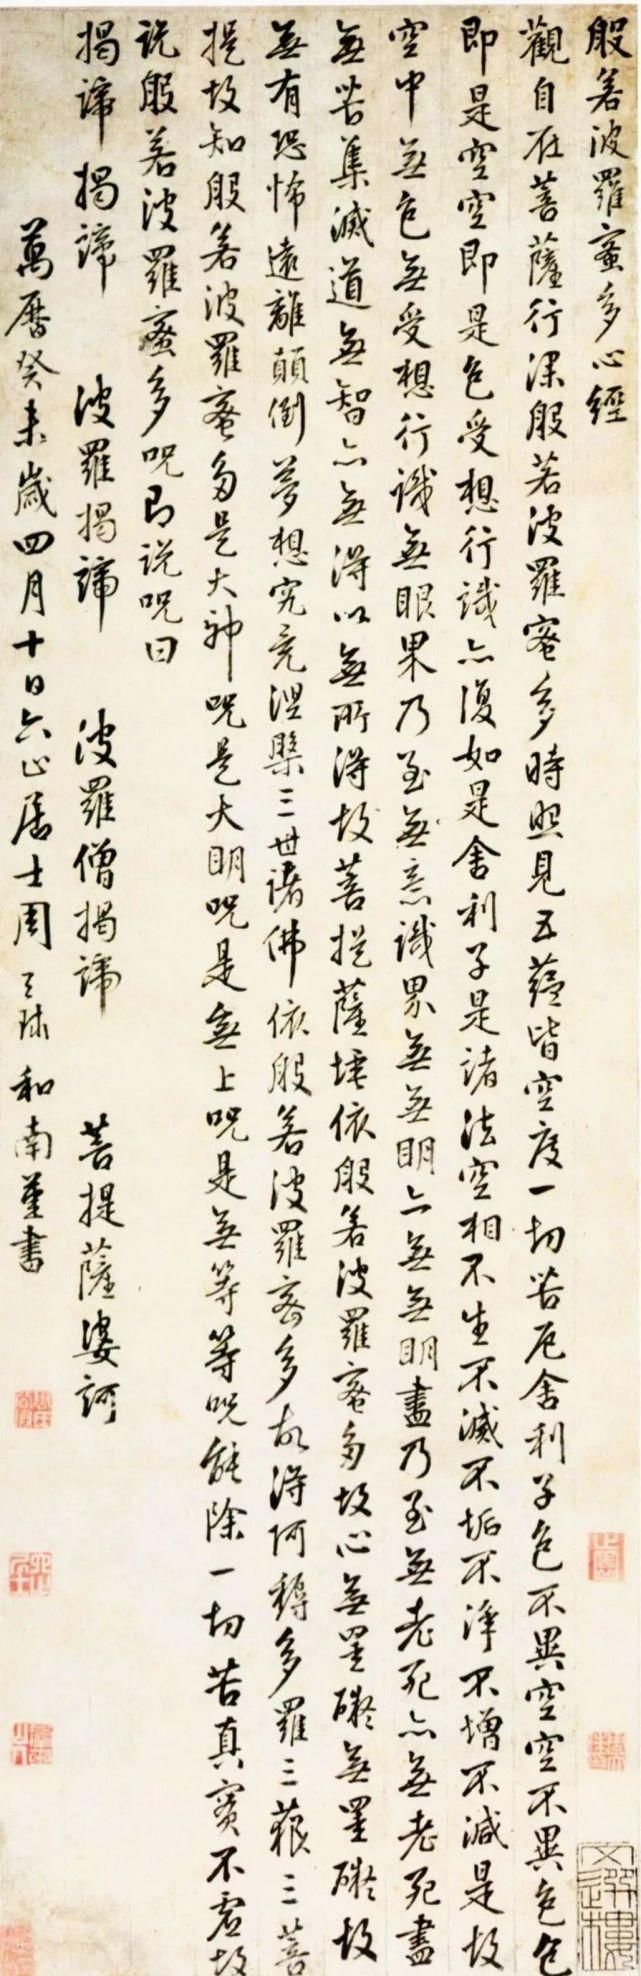 般若波羅蜜多心經
觀自在菩薩行深般若波羅蜜多時照見五蘊皆空度一切苦厄舍利子色不異空空不異色色
即是空空即是色受想行識亦復如是舍利子是諸法空相不生不滅不垢不淨不增不減是故
空中無色無受想行識無眼果乃至無意識界無無明亦無無明盡乃至無老死亦無老死盡
無苦集滅道無智亦無得以無所得故菩提薩埵依般若波羅蜜多故心無罣礙無罣礙故
無有恐怖遠離顛倒夢想究竟涅槃三世諸佛依般若波羅蜜多故得阿耨多羅三藐三菩
提故知般若波羅蜜多是大神呪是大明呪是無上呪是無等等呪能除一切苦真實不虛故
說般若波羅蜜多呪即說呪曰
揭諦揭諦 波羅揭諦 波羅僧揭諦 菩提薩婆訶
萬曆癸未歲四月十日六止居士周天球和南謹書
文選樓